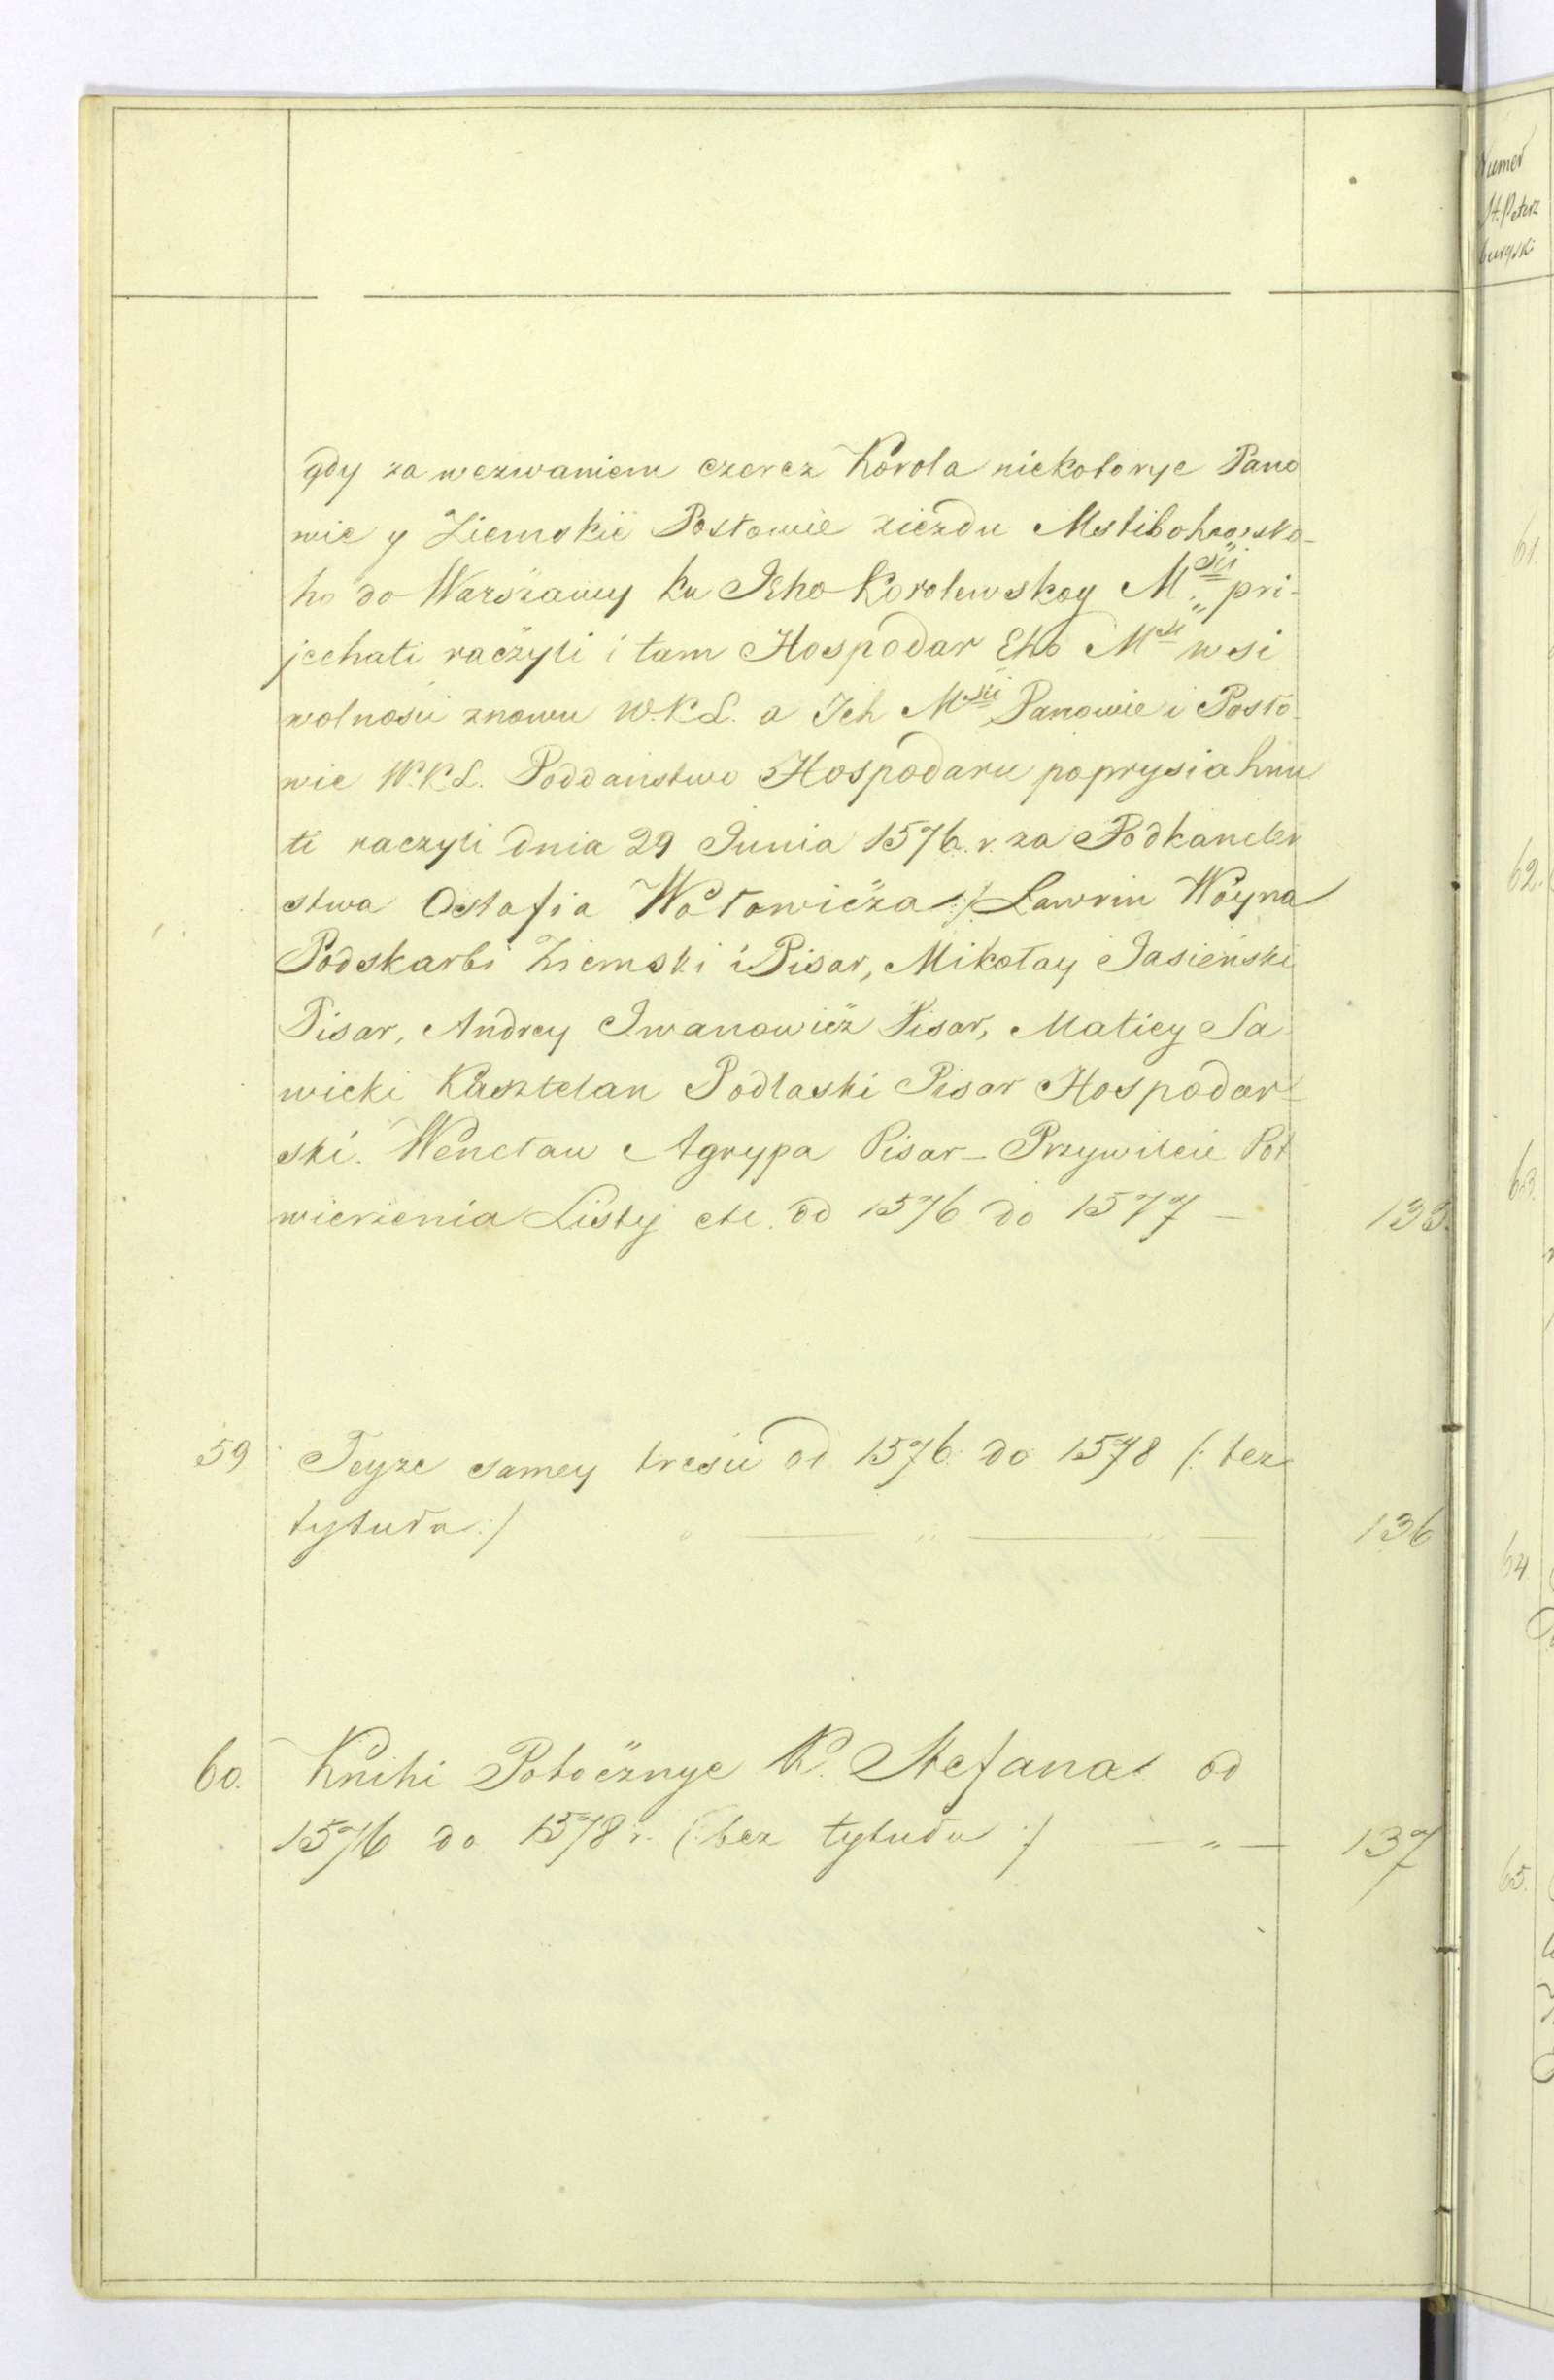 gdy za wezwaniem czerez Korola niekotorye Pano
wie y Ziemskiě Posłowie ziezdu Mstibohowsko-
ho do Warszawy ku Jeho Korolewskoy Mści pri-
jechati raczyli i tam Hospodar Eho Mść wsi
wolnosci znowu W.K.L. a Ich Mści Panowie i Posło-
wie W.K.L. Poddaństwo Hospodaru poprysiahnu
ti raczyli dnia 29 Junia 1576. r. za Podkancler
stwa Ostafia Wołowicza :/ Lawrin Woyna
Podskarbi Ziemski i Pisar, Mikołay Jasieński
Pisar, Andrey Iwanowicz Pisar, Maciey Sa
wicki Kasztelan Podlaski Pisar Hospodar-
ski. Wencław Agrypa Pisar – Przywileie Pot
wierzenia Listy etc. od 1576 do 1577 – 135.
59 Teyże samey treści od 1576 do 1578 (: bez
tytuła :) " — " — " — 136
60. Knihi Potocznye K. Stefana od
1576 do 1578 r. (: bez tytułu :) — " — 137
Numer
St. Peterz
burgski
61.
62.
63.
64.
65.